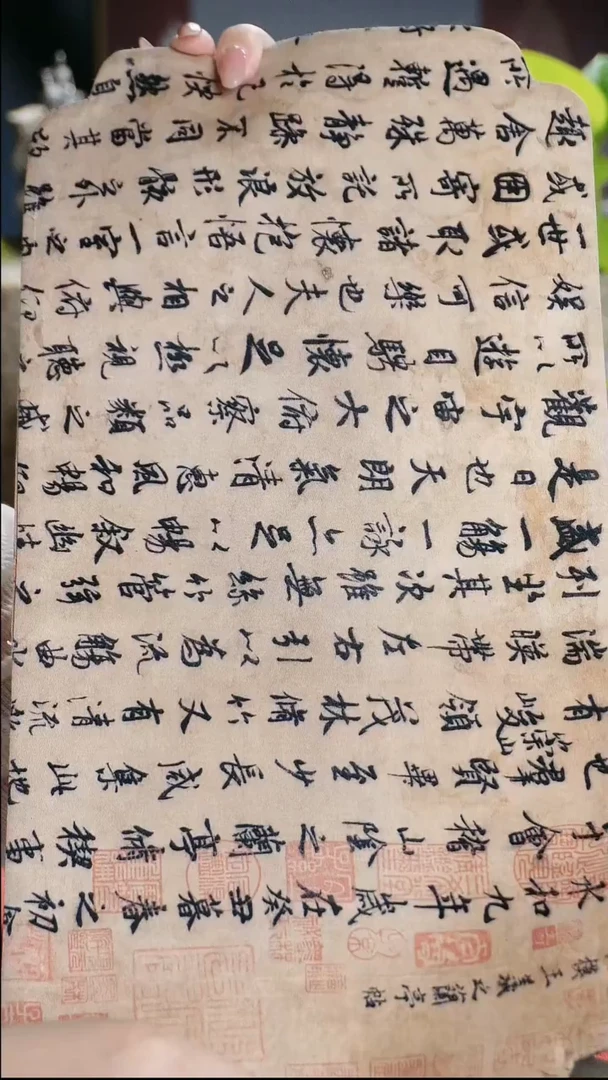 摸王羲之蘭亭帖
永和九年歲在癸丑暮春之初會
于會稽山陰之蘭亭脩稧事
也羣賢畢至少長咸集此地
有崇山峻領茂林脩竹又有清流激
湍暎帶左右引以為流觴曲水
列坐其次雖無絲竹管弦之
盛一觴一詠亦足以暢敘幽情
是日也天朗氣清惠風和暢仰
觀宇宙之大俯察品類之盛
所以遊目騁懷足以極視聽之
娛信可樂也夫人之相與俯仰
一世或取諸懷抱悟言一室之內
或因寄所託放浪形骸之外雖
趣舍萬殊靜躁不同當其欣
所遇蹔得於己怏然自